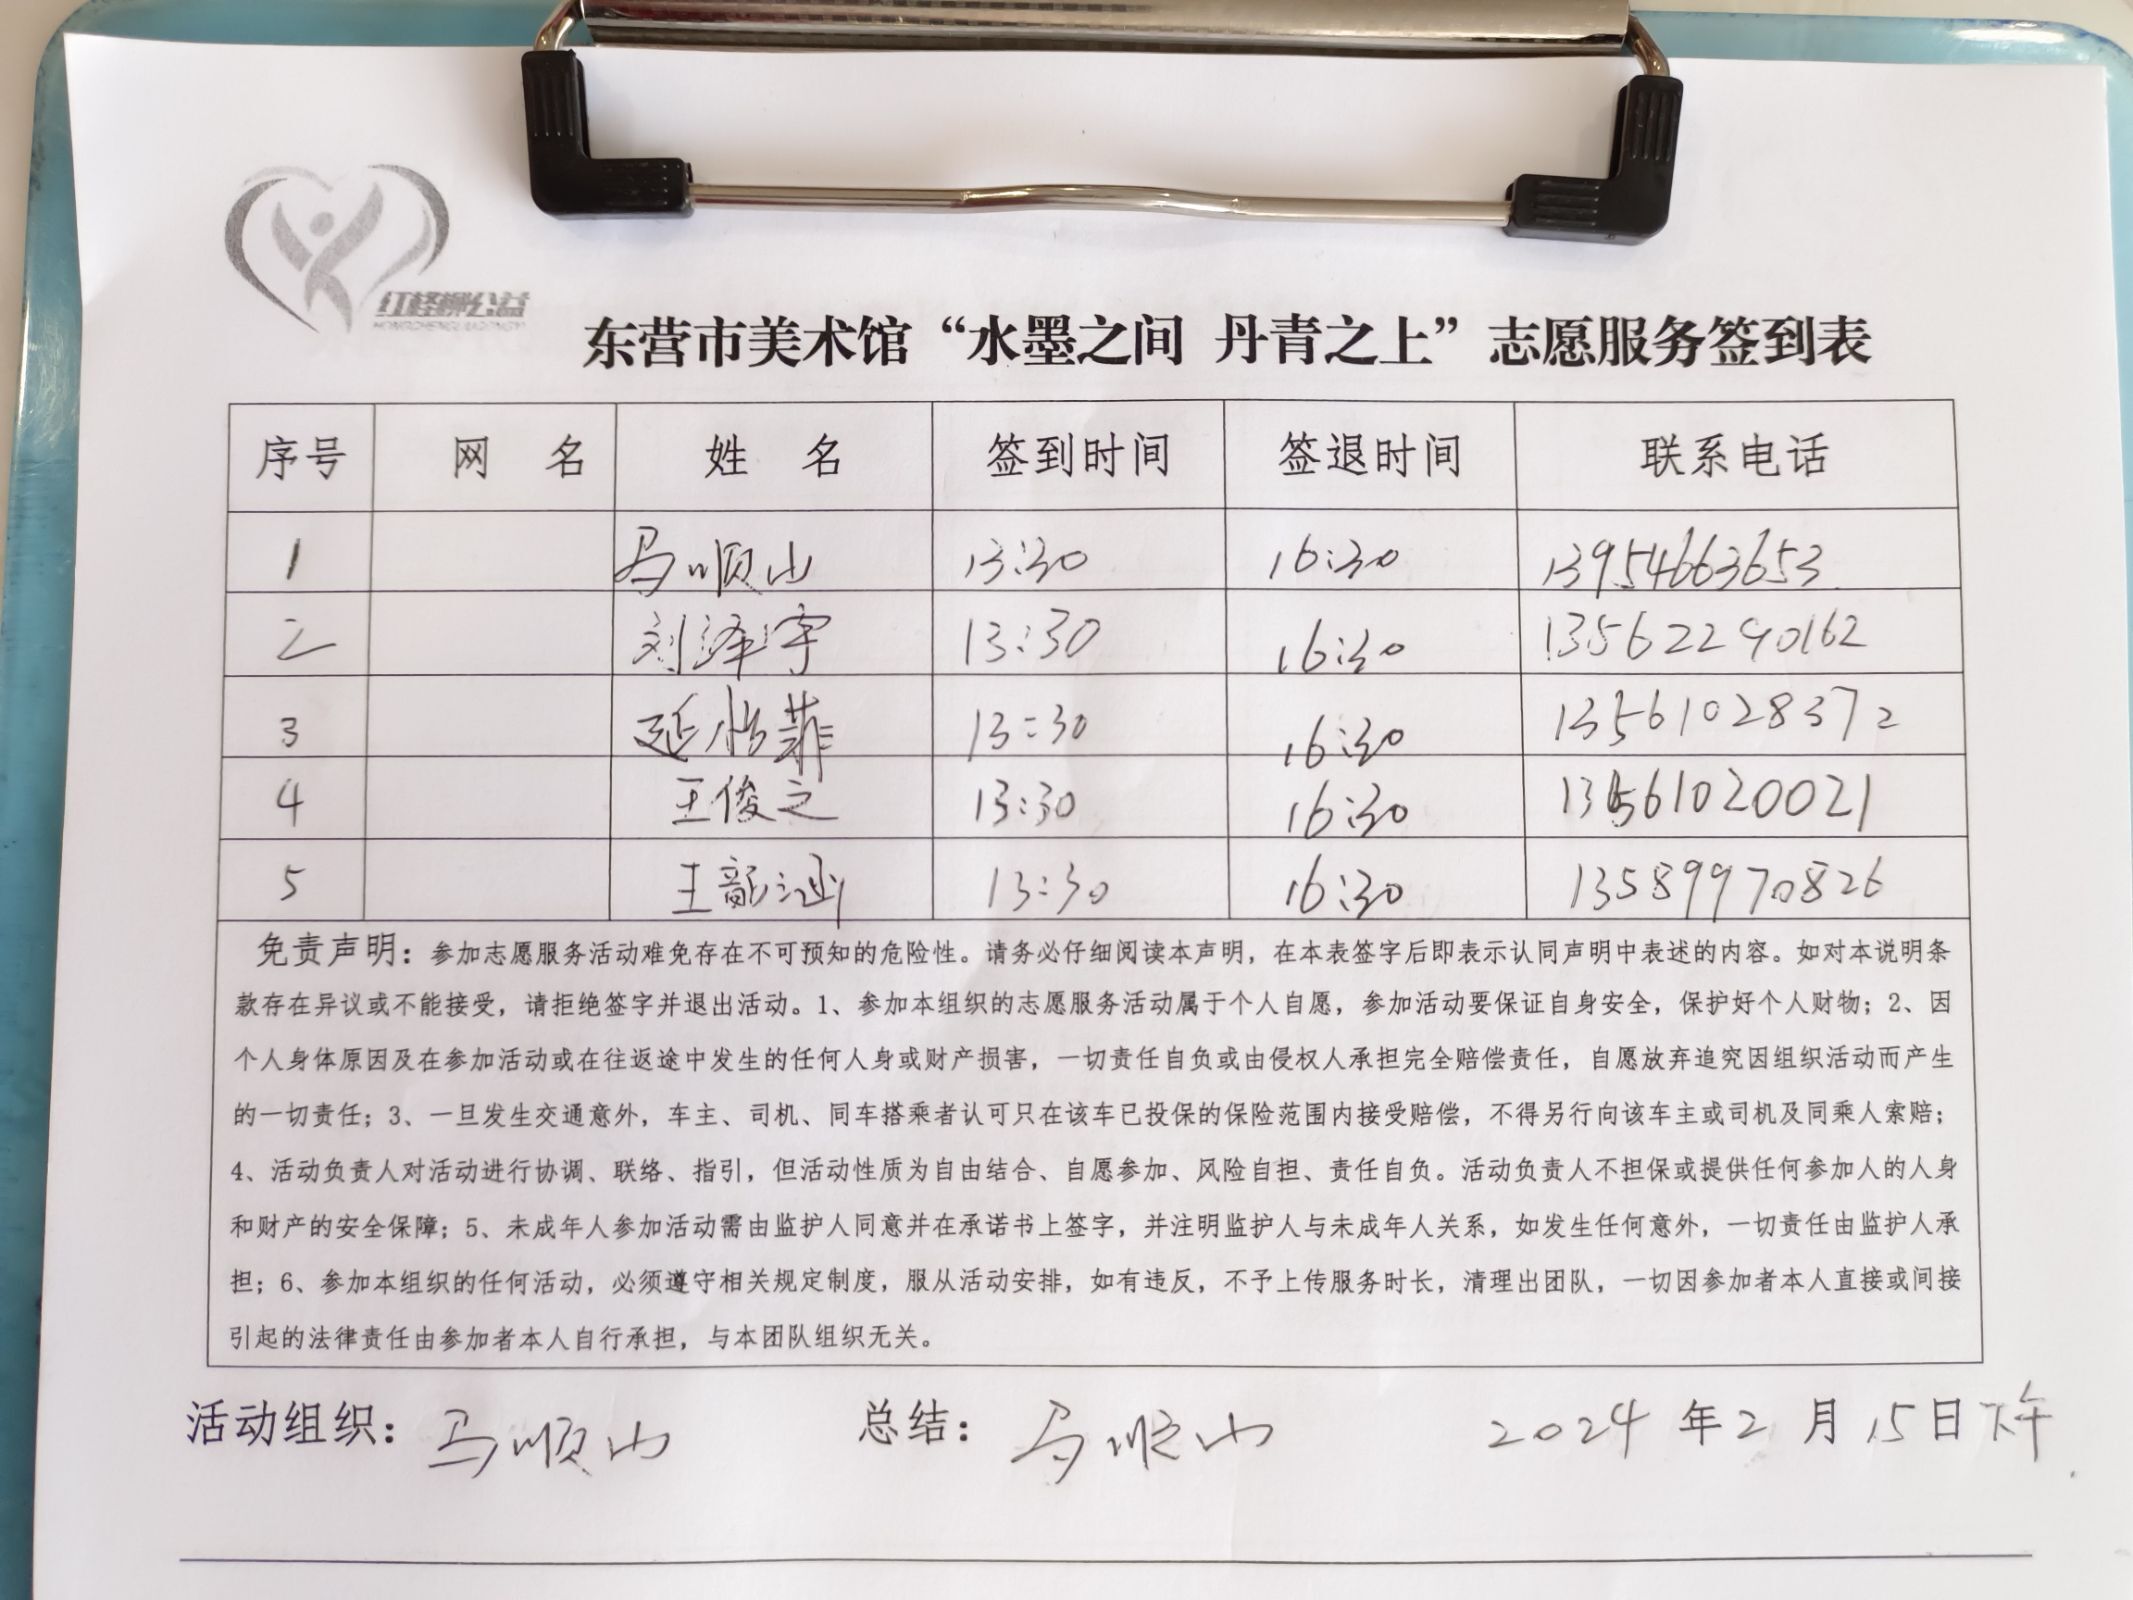 红柽柳公益
HONGCHENGLIUGONGYI
东营市美术馆“水墨之间 丹青之上”志愿服务签到表
序号 网 名 姓 名 签到时间 签退时间 联系电话
1 马顺山 13:30 16:30 13954663653
2 刘泽宇 13:30 16:30 13562290162
3 延怡菲 13:30 16:30 13561028372
4 王俊之 13:30 16:30 13561020021
5 王韶涵 13:30 16:30 13589970826
免责声明：参加志愿服务活动难免存在不可预知的危险性。请务必仔细阅读本声明，在本表签字后即表示认同声明中表述的内容。如对本说明条
款存在异议或不能接受，请拒绝签字并退出活动。1、参加本组织的志愿服务活动属于个人自愿，参加活动要保证自身安全，保护好个人财物；2、因
个人身体原因及在参加活动或在往返途中发生的任何人身或财产损害，一切责任自负或由侵权人承担完全赔偿责任，自愿放弃追究因组织活动而产生
的一切责任；3、一旦发生交通意外，车主、司机、同车搭乘者认可只在该车已投保的保险范围内接受赔偿，不得另行向该车主或司机及同乘人索赔；
4、活动负责人对活动进行协调、联络、指引，但活动性质为自由结合、自愿参加、风险自担、责任自负。活动负责人不担保或提供任何参加人的人身
和财产的安全保障；5、未成年人参加活动需由监护人同意并在承诺书上签字，并注明监护人与未成年人关系，如发生任何意外，一切责任由监护人承
担；6、参加本组织的任何活动，必须遵守相关规定制度，服从活动安排，如有违反，不予上传服务时长，清理出团队，一切因参加者本人直接或间接
引起的法律责任由参加者本人自行承担，与本团队组织无关。
活动组织：马顺山 总结：马顺山 2024年2月15日下午